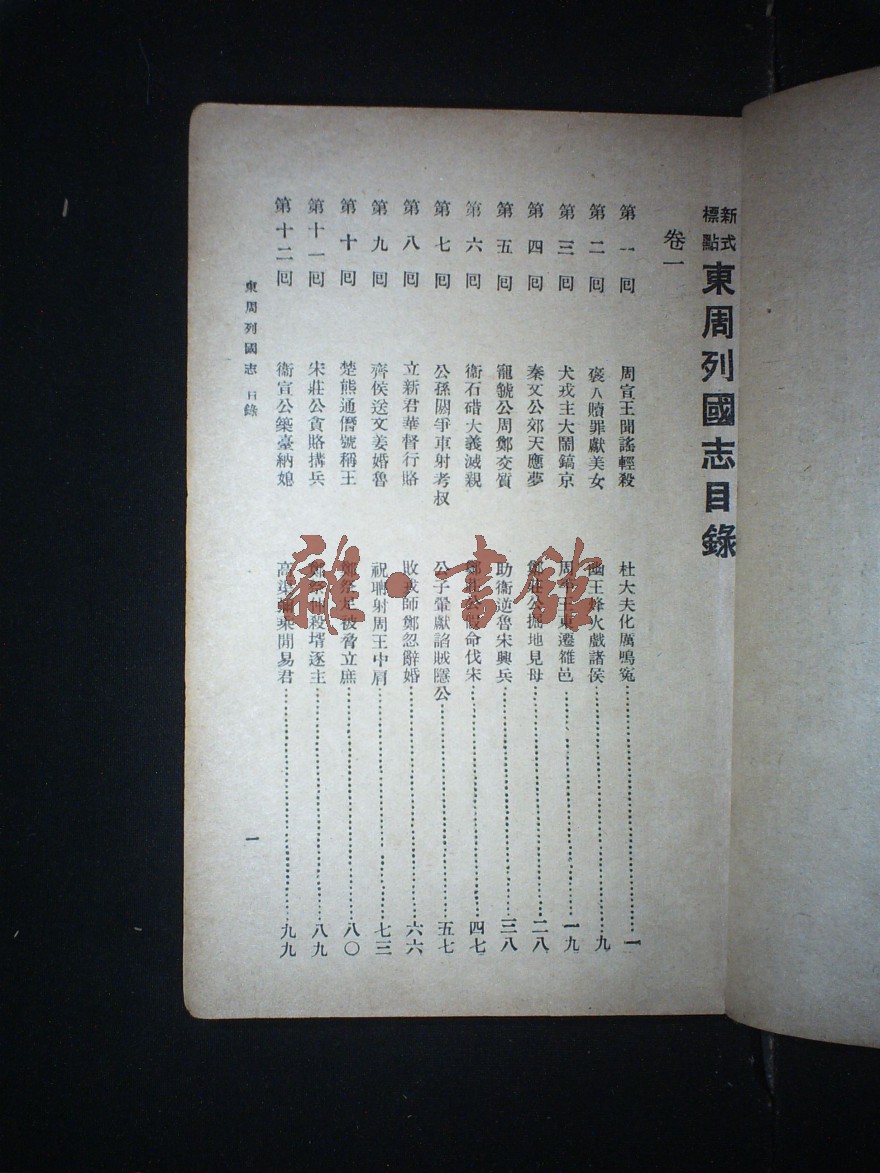 新式標點 東周列國志目錄
卷一
第一回 周宣王聞謠輕殺 杜大夫化厲鳴冤 一
第二回 褒人贖罪獻美女 幽王烽火戲諸侯 九
第三回 犬戎主大鬧鎬京 周平王東遷雒邑 一九
第四回 秦文公郊天應夢 鄭莊公掘地見母 二八
第五回 寵虢公周鄭交質 助衛逆魯宋興兵 三八
第六回 衞石碏大義滅親 鄭莊公假命伐宋 四七
第七回 公孫閼爭車射考叔 公子翬獻諂賊隱公 五七
第八回 立新君華督行賂 敗戎師鄭忽辭婚 六六
第九回 齊侯送文姜婚魯 祝聃射周王中肩 七三
第十回 楚熊通僭號稱王 鄭祭足被脅立庶 八〇
第十一回 宋莊公貪賂搆兵 鄭祭仲殺壻逐主 八九
第十二回 衞宣公築臺納媳 高渠彌乘閒易君 九九
東周列國志 目錄
一
雜·書館